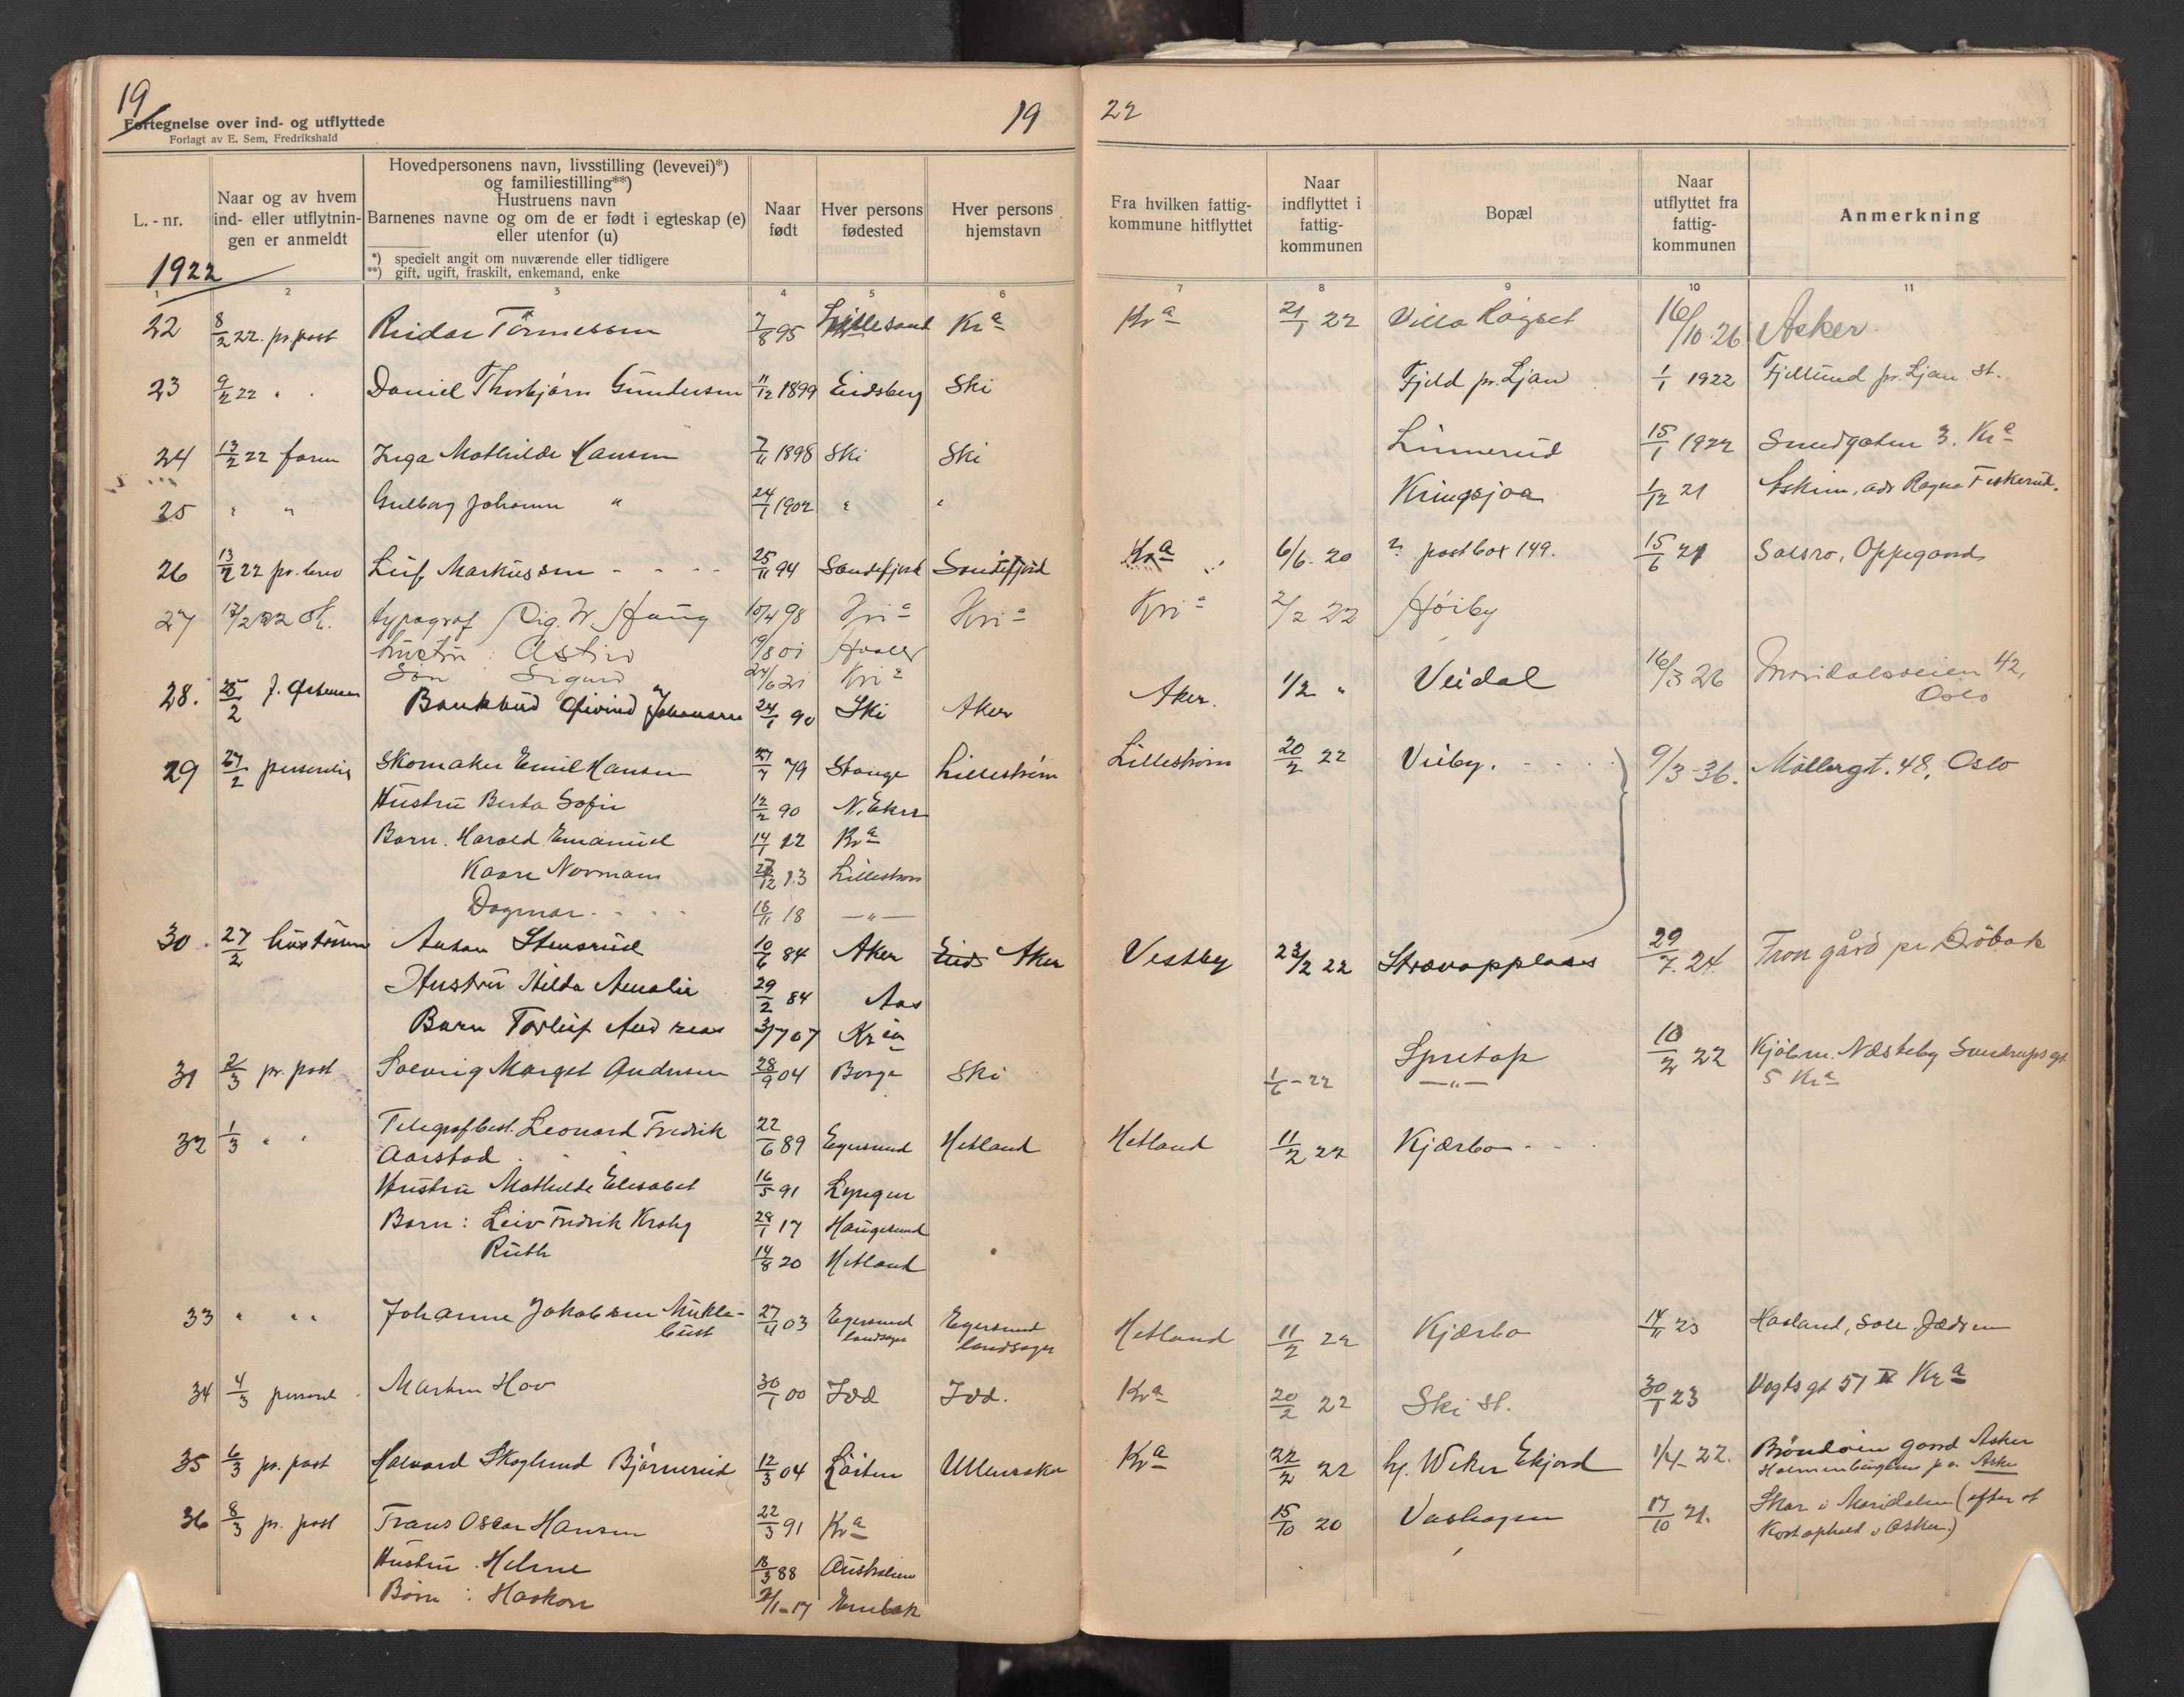 19
Fortegnelse over ind- og utflyttede
Forlagt av E. Sem, Fredrikshald
19 22
L. - nr.
Naar og av hvem ind- eller utflytningen er anmeldt
Hovedpersonens navn, livsstilling (levevei)*)
og familiestilling**)
Hustruens navn
Barnenes navne og om de er født i egteskap (e)
eller utenfor (u)
*) specielt angit om nuværende eller tidligere
**) gift, ugift, fraskilt, enkemand, enke
Naar født
Hver persons fødested
Hver persons hjemstavn
Fra hvilken fattigkommune hitflyttet
Naar indflyttet i fattigkommunen
Bopæl
Naar utflyttet fra fattigkommunen
Anmerkning
1922
1 2 3 4 5 6 7 8 9 10 11
22 8/2 22. pr. post Reidar Tönnessen 7/8 95 Lillesand Kra Kra 21/1 22 Villa Högset 16/10.26 Asker
23 9/2 22 " . Daniel Thorbjörn Gundersen 11/12 1899 Eidsberg Ski Fjeld pr. Ljan 1/1 1922 Fjellund pr. Ljan st.
24 13/2 22 faren Inga Mathilde Hansen 7/11 1898 Ski Ski Linnerud 15/1 1922 Smedgaten 3. Kra
25 " " Gulborg Johanne " 24/1 1902 " " Kringsjaa 1/12 21 Askim, adr Ragna Fiskerud.
26 13/2 22 pr. brev Leif Markussen - - - - 25/11 94 Sandefjord Sandefjord Kra 6/6. 20 ? postbox 149. 15/6 21 Solsro, Oppegaard
27 17/2 22 typograf Sig. W. Haug 10/4 98 Kria Kria Kria 2/2 22 Höiby
hustru : Astrid 19/8 01 Hvaler
Søn Sigurd 24/6 21 Kria
28. 25/2 J. Østensen Bankbud Øivind Johansen 24/1 90 Ski Aker Aker. 1/2 " Veidal 16/3 26 Maridalsveien 42,
Oslo
29 27/2 personlig Skomaker Emil Hansen 27/7 79 Stange Lilleström Lilleström 20/2 22 Viiby. - - - 9/3-36. Möllergt. 48, Oslo
Hustru Berta Sofie 12/2 90 N. Eker
Barn. Harald Emanuel 14/1 12 Kra
Kaare Normann 28/12 13 Lilleström
Dagmar - - - - 18/11 18 —"—
30 . 27/2 hustruen Anton Stensrud 10/6 84 Aker Eids Aker Vestby 23/2 22 29/7.24 Fron gård pr Dröbak
Hustru Hilda Amalie 29/2 84 Aas
Barn Torleif Andreas 3/7 07 Kria
31 2/3 pr. post Solveig Marget Andersen 28/9 04 Borge Ski Spretop 10/2 22 Kjöbm. Næsteby Sverdrupsgt
1/6-22 —"— 5 Kra
32 1/3 " " Telegrafbest. Leonard Fredrik 22/6 89 Egersund Hetland Hetland 11/2 22 Kjærbo - -
Aarstad
Hustru Mathilde Elisabet 16/5 91 Lyngen
Barn : Leiv Fredrik Krohg 28/1 17 Haugesund
Ruth 14/8 20 Hetland
33 " " " Johanne Jakobsen Mykle-
bust 27/4 03 Egersund landsogn Egersund landsogn Hetland 11/2 22 Kjærbo 14/11 23
34 4/3 personl. Marten Hov 30/1 00 Idd Idd. Kra 20/2 22 Ski st. 30/1 23 Vogtsgt 51 II Kra
35 6/3 pr. post Halvard Skoglund Björnerud 12/3 04 Löiten Ullensaker Kra 22/2 22 1/4-22. Bröndöien gaard Asker
36 8/3 pr. post Frans Oscar Hansen 22/3 91 Kra 15/10 20 Vashagen 17/10 21. Skar i Maridalen (efter et
Kortophold i Asker.)
Hustru . Helene 18/3 88 Australien
Börn : Haakon 2/1-17 Enebak